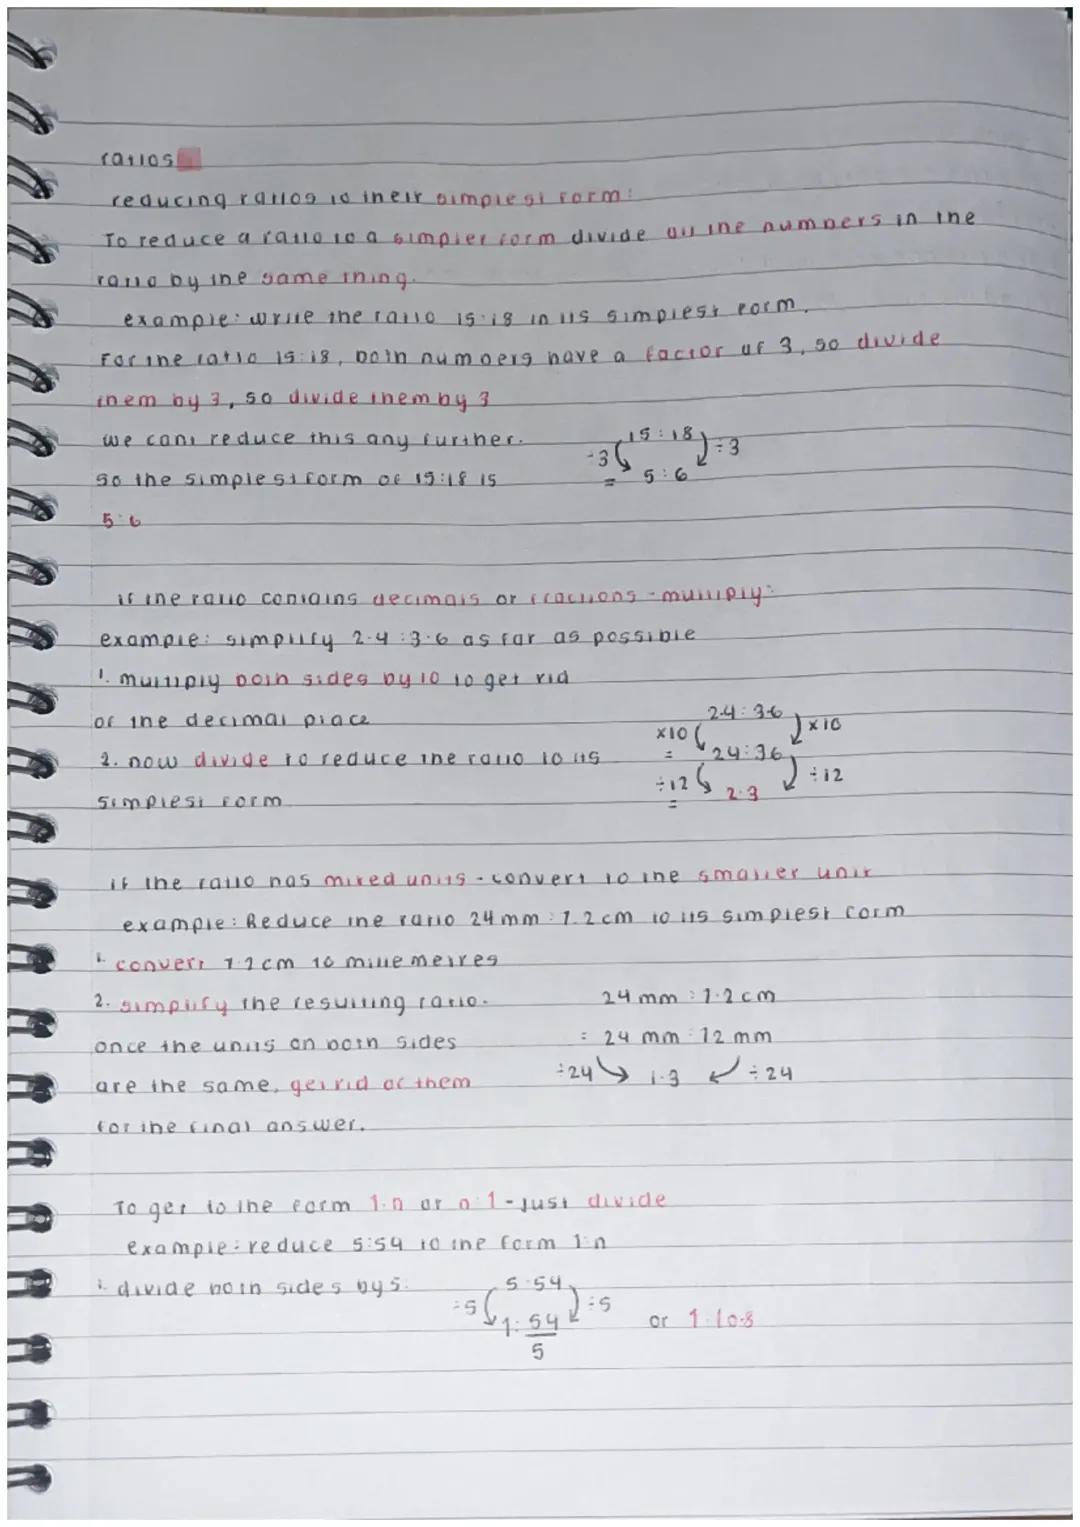 ratios
reducing ratios to their simplest form:
To reduce a ratio to a simpler form divide all the numbers in the
ratio by the same thing.
example: write the ratio 15:18 in its simplest form.
For the ratio 15:18, both numbers have a factor of 3, so divide
them by 3, so divide them by 3
we cant reduce this any further.
15:18
÷3
÷3
so the simplest form of 15:18 is
= 5:6
5:6
if the ratio contains decimals or fractions - multiply:
example: simplify 2.4:3.6 as far as possible
1. multiply both sides by 10 to get rid
of the decimal place
2.4:3.6
×10
×10
2. now divide to reduce the ratio to its
= 24:36
simplest form
÷12
÷12
= 2:3
if the ratio has mixed units - convert to the smaller unit
example: Reduce the ratio 24mm:7.2cm to its simplest form
1. convert 7.2cm to millemetres
2. simplify the resulting ratio.
24mm:7.2cm
once the units on both sides
= 24 mm:72mm
are the same, get rid of them
÷24 1:3 ÷24
for the final answer.
To get to the form 1:n or n:1 - just divide
example: reduce 5:54 to the form 1:n
1. divide both sides by 5:
5:54
÷5
÷5
1:54
5
or 1:10.8